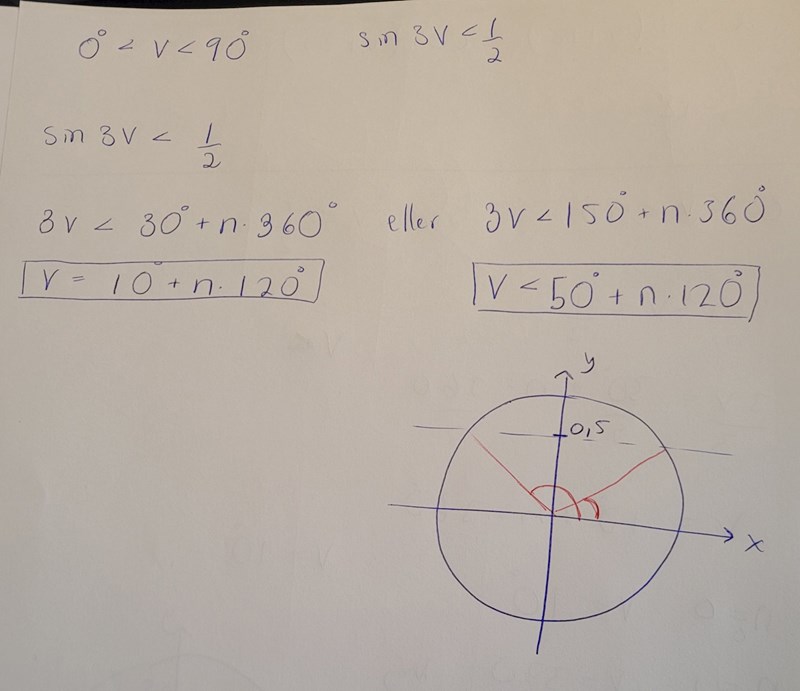 0° < v < 90° sin 3v < 1/2
sin 3v < 1/2
3v < 30° + n · 360° eller 3v < 150° + n · 360°
v = 10° + n · 120° v < 50° + n · 120°
y
0,5
x